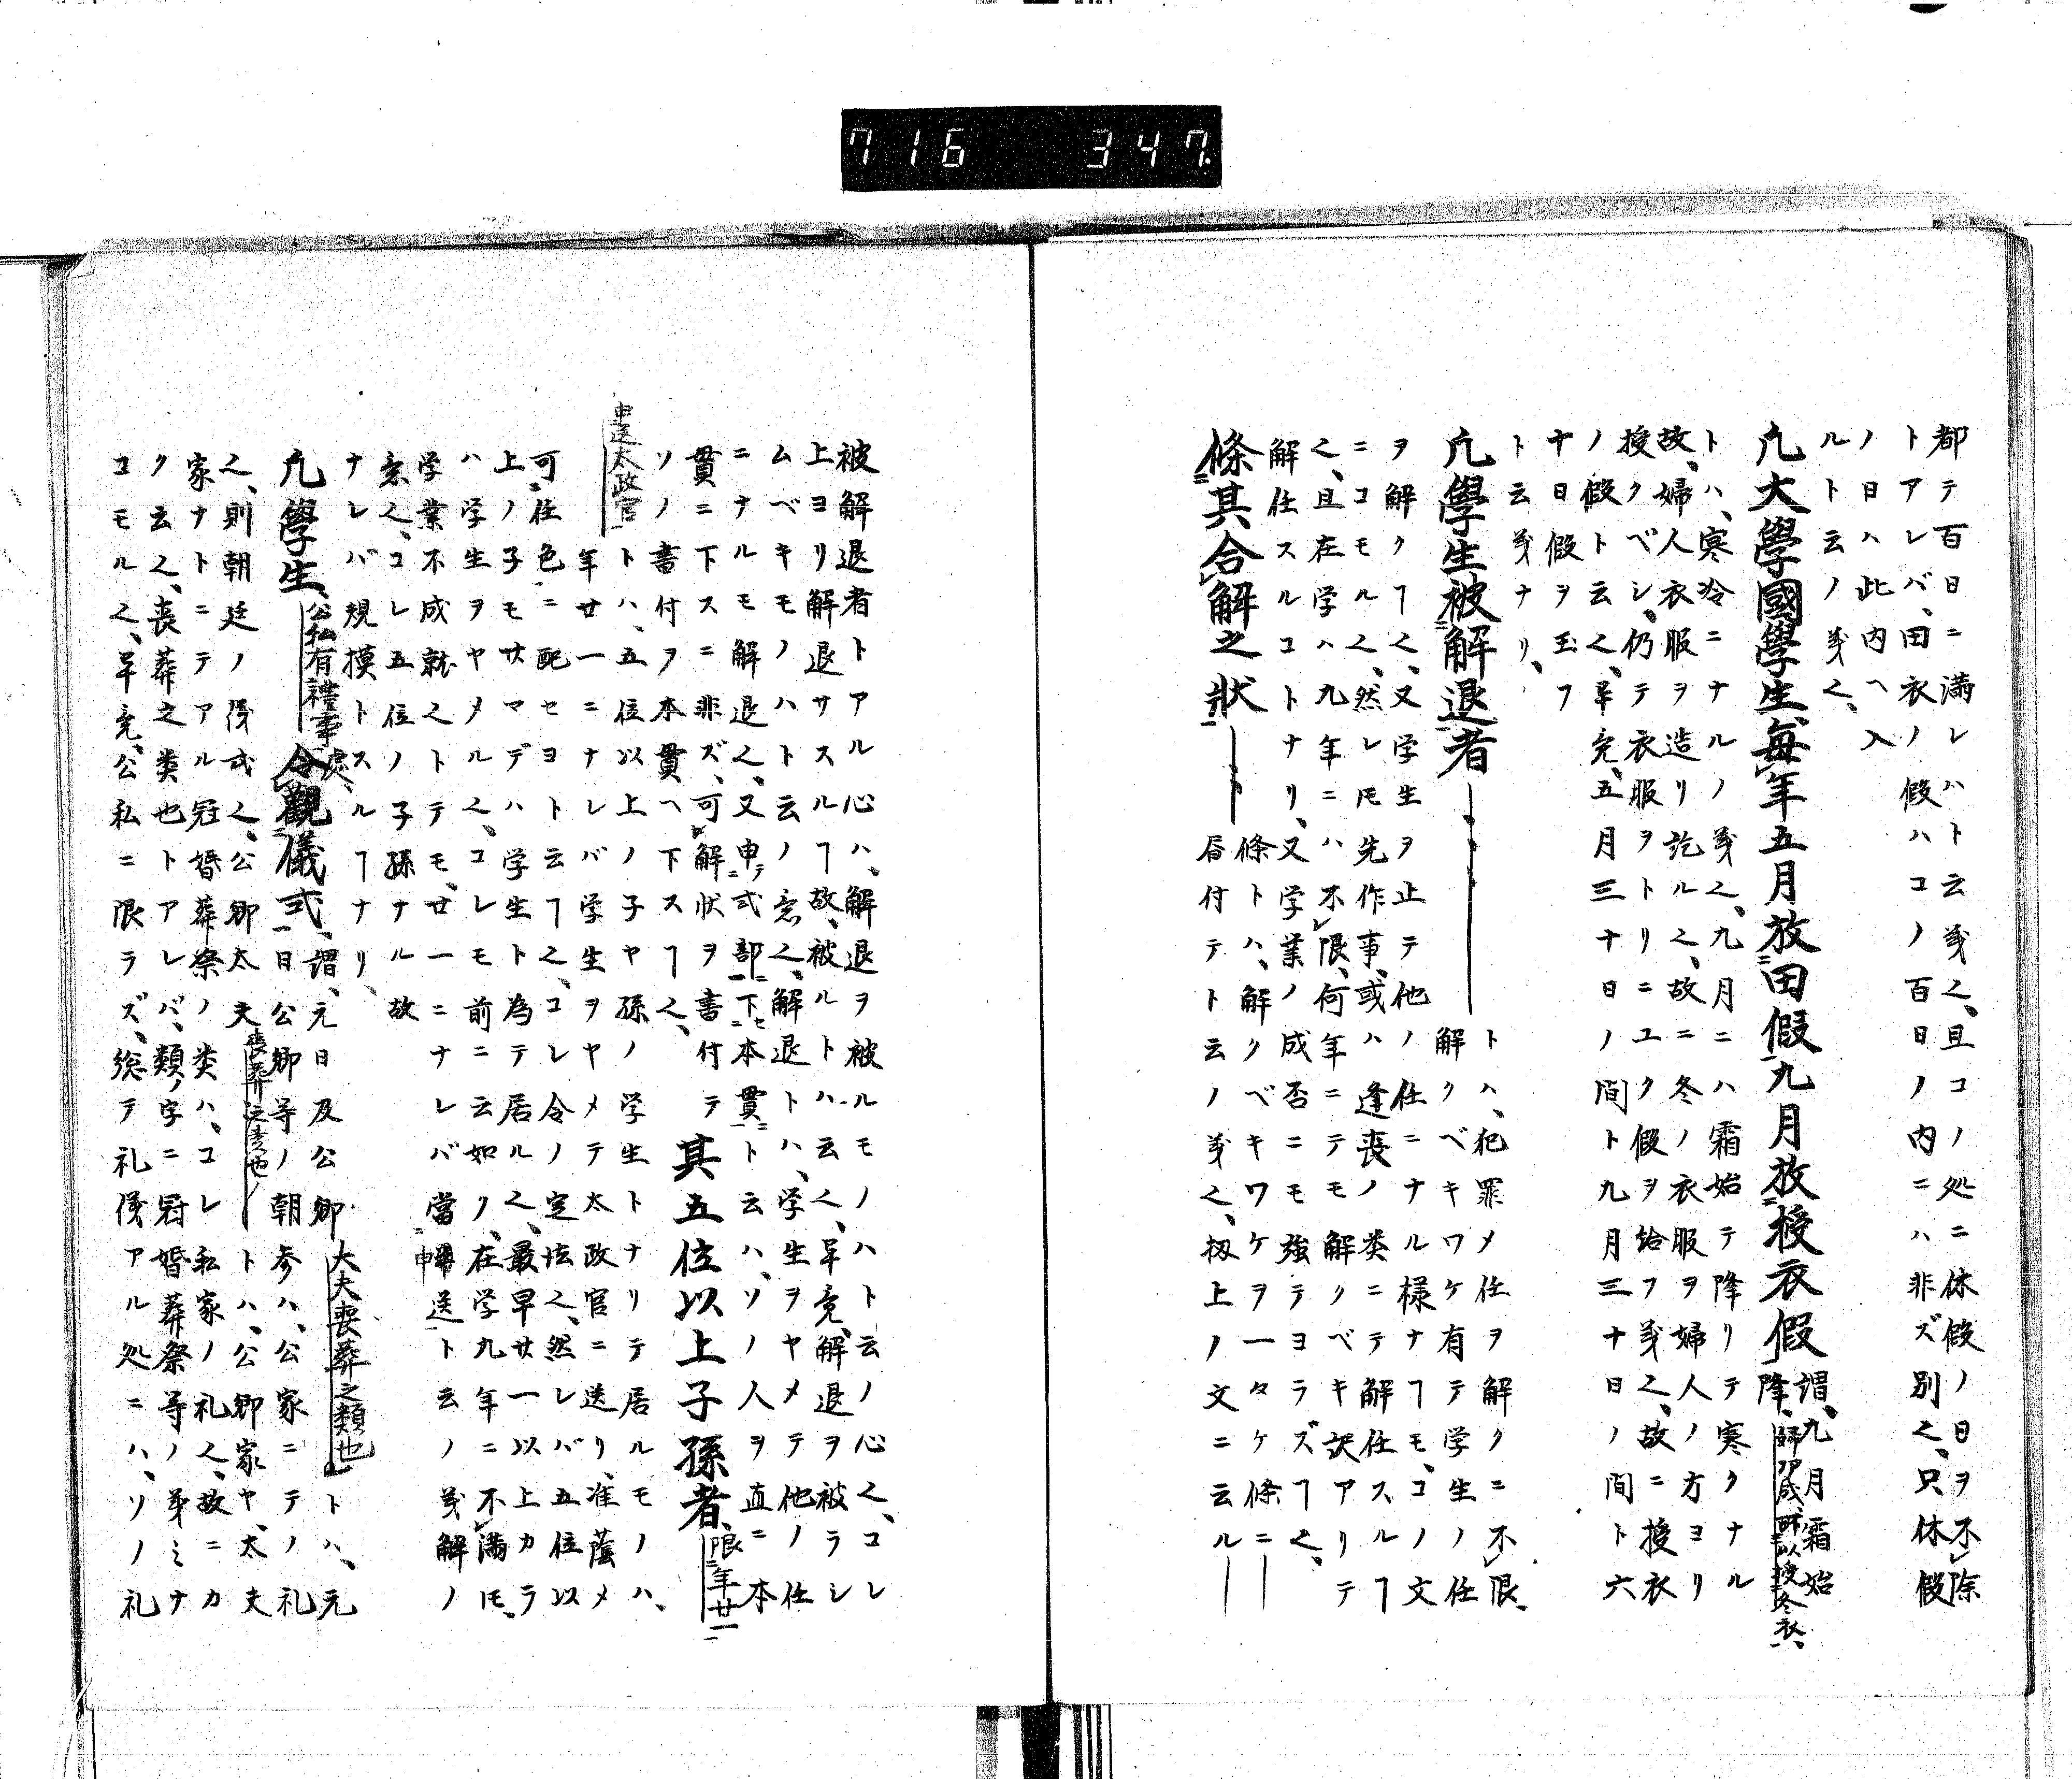 716 347.
都テ百日ニ満レハト云義也、且コノ処ニ休假ノ日ヲ不除
トアレバ、田衣ノ假ハコノ百日ノ内ニハ非ズ別也、只休假
ノ日ハ此内ヘ入
ルト云ノ義也、
凡大學國學生、毎年五月放田假、九月放授衣假
謂、九月霜始
降、婦功成、所以授冬衣、
トハ、寒冷ニナルノ義也、九月ニハ霜始テ降リテ寒クナル
故、婦人衣服ヲ造リ訖ル也、故ニ冬ノ衣服ヲ婦人ノ方ヨリ
授クベシ、仍テ衣服ヲトリニユク假ヲ給フ義也、故ニ授衣
ノ假ト云也、畢竟、五月三十日ノ間ト九月三十日ノ間ト六
十日假ヲ玉フ
ト云義ナリ、
凡學生被解退者
トハ、犯罪メ任ヲ解クニ不限、
解クベキワケ有テ学生ノ任
ヲ解クヿ也、又学生ヲ止テ他ノ仕ニナル様ナヿモ、コノ文
ニコモル也、然レモ先作事、或ハ逢喪ノ類ニテ解任スルヿ
也、且在学ハ九年ニハ不限、何年ニテモ解クベキ訳アリテ
解任スルコトナリ、又学業ノ成否ニモ強テヨラズヿ也、
條其合解之狀
ト 條トハ、解クベキワケヲ一々ケ條ニ
眉付テト云ノ義也、扨上ノ文ニ云ル
被解退者トアル心ハ、解退ヲ被ルモノハト云ノ心也、コレ
上ヨリ解退サスルヿ故、被ルトハ云也、畢竟、解退ヲ被ラシ
ムベキモノハト云ノ意也、解退トハ、学生ヲヤメテ他ノ任
ニナルモ解退也、又申式部下本貫ト云ハ、ソノ人ヲ直ニ本
貫ニ下スニ非ズ、可解状ヲ書付テ
ソノ書付ヲ本貫ヘ下スヿ也、
其五位以上子孫者、
限年廿一
申送太政官
トハ、五位以上ノ子ヤ孫ノ学生トナリテ居ルモノハ、
年廿一ニナレバ学生ヲヤメテ太政官ニ送リ、准蔭メ
可任色ニ配セヨト云ヿ也、コレ令ノ定坛也、然レバ五位以
上ノ子モサマデハ学生ト為テ居ル也、最早廿一以上カラ
ハ学生ヲヤメル也、コレモ前ニ云如ク、在学九年ニ不満モ、
学業不成就也トテモ、廿一ニナレバ當申送ト云ノ義解ノ
意也、コレ五位ノ子孫ナル故
ナレバ規摸トスルヿナリ、
凡學生、
公私有禮事處、
令觀儀式、
謂、元日及公卿
大夫喪葬之類也
トハ、元
日公卿等ノ朝参ハ、公家ニテノ礼
也、則朝廷ノ儀式也、公卿太夫
喪葬之類也
トハ、公卿家ヤ、太夫
家ナトニテアル冠婚葬祭ノ类ハ、コレ私家ノ礼也、故ニカ
ク云也、喪葬之类也トアレバ、類ノ字ニ冠婚葬祭等ノ義ミナ
コモル也、畢竟、公私ニ限ラズ、総テ礼儀アル処ニハ、ソノ礼